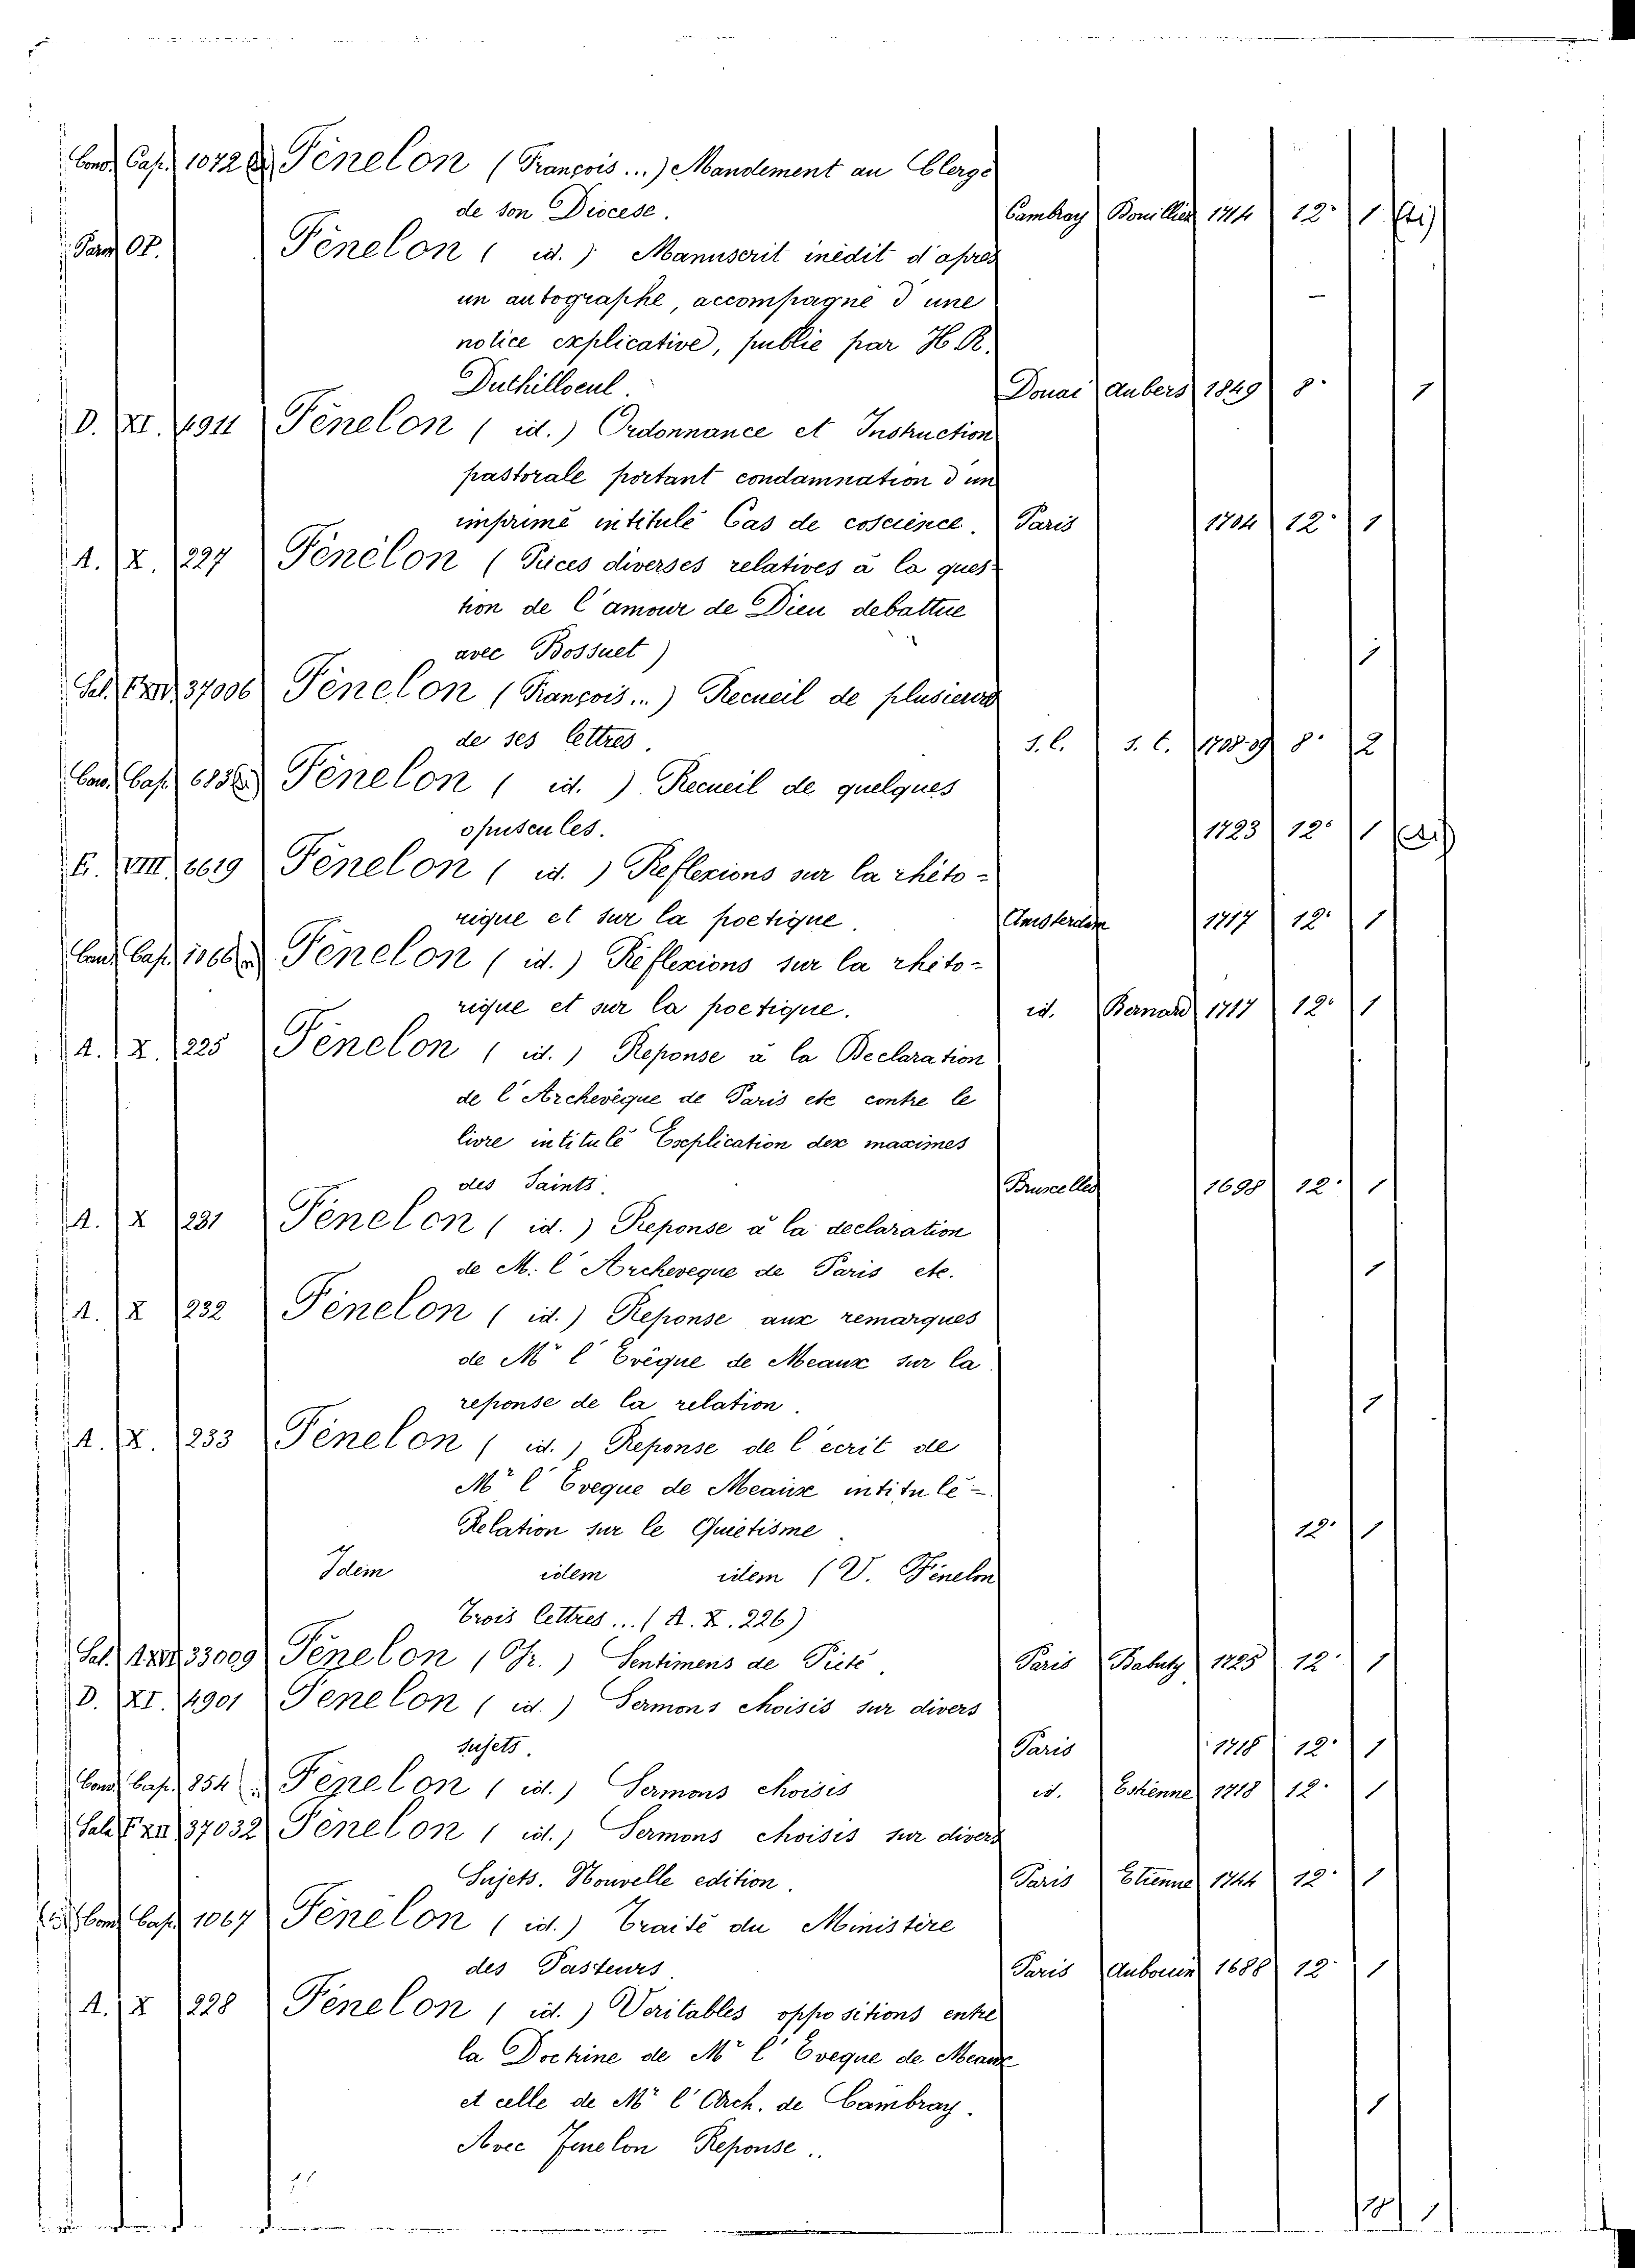 Cons. Cap. 1072 Fénelon (François...) Mandement au Clergé
de son Diocese. Cambray 1714 12° 1
Pam Op. Fénelon ( id. ) Manuscrit inédit d'après
un autographe, accompagné d'une
notice explicative, publié par H. R.
Duthilloeul Douai Aubers 1849 8° 1
D. XI. 4911 Fénelon ( id.) Ordonnance et Instruction
pastorale portant condamnation d'un
imprimé intitulé Cas de coscience. Paris 1704 12° 1
A. X. 227 Fénélon (Piéces diverses relatives à la ques-
tion de l'amour de Dieu debattue
avec Bossuet) 1
Sal. 37006 Fénelon (François...) Recueil de plusieurs
de ses lettres. s. l. s. t. 8° 2
Cons. Cap. Fénelon ( id. ) Recueil de quelques
opuscules. 1723 12° 1
E. VIII. 6619 Fénelon ( id. ) Reflexions sur la rhéto-
rique et sur la poetique. Amsterdam 1717 12° 1
Cons. Cap. Fénelon ( id.) Réflexions sur la rhéto-
rique et sur la poetique. id. Bernard 1717 12° 1
A. X. 225 Fénelon ( id.) Reponse à la Declaration
de l'Archevèque de Paris etc contre le
livre intitulé Explication dex maximes
des Saints. Bruxelles 1698 12° 1
A. X 231 Fénelon ( id.) Reponse à la declaration
de M. l'Archeveque de Paris etc. 1
A. X 232 Fénelon ( id.) Reponse aux remarques
de Mr l'Evèque de Meaux sur la
reponse de la relation. 1
A. X. 233 Fénelon ( id.) Reponse de l'ecrit de
Mr l'Eveque de Meaux intitulé-
Relation sur le Quiétisme 12° 1
Idem idem idem (V. Fénelon
Trois lettres... (A. X. 226)
Sal. 33009 Fénelon (Fr.) Sentimens de Pieté. Paris Babuty 1725 12° 1
D. XI. 4901 Fenelon ( id.) Sermons choisis sur divers
sujets. Paris 1718 12° 1
Cons. Cap. 854 Fénelon ( id.) Sermons choisis id. Estienne 1718 12° 1
Sala F XII 37032 Fénelon ( id.) Sermons choisis sur divers
Sujets. Nouvelle edition. Paris Etienne 1744 12° 1
Cons. Cap. 1067 Fénélon ( id.) Traité du Ministère
des Pasteurs Paris Aubouin 1688 12° 1
A. X 228 Fénelon ( id.) Veritables oppositions entre
la Doctrine de Mr l'Eveque de Meaux
et celle de Mr l'Arch. de Cambray. 1
Avec Fenelon Reponse..